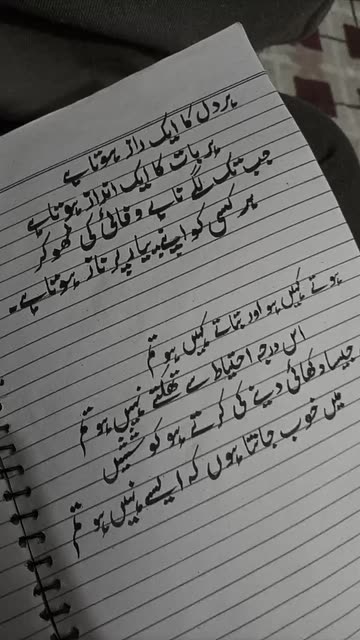 ہر دل کا ایک راز ہوتا ہے
ہر بات کا ایک انداز ہوتا ہے
جب تک لگے نا بے وفائی کی ٹھوکر
ہر کسی کو اپنے پیار پر ناز ہوتا ہے۔
ہوتے کہیں ہو اور بتاتے کہیں ہو تم
اس درجہ احتیاط سے تھکتے نہیں ہو تم
جیسا دکھائی دینے کی کرتے ہو کوششیں
میں خوب جانتا ہوں کہ ایسے نہیں ہو تم